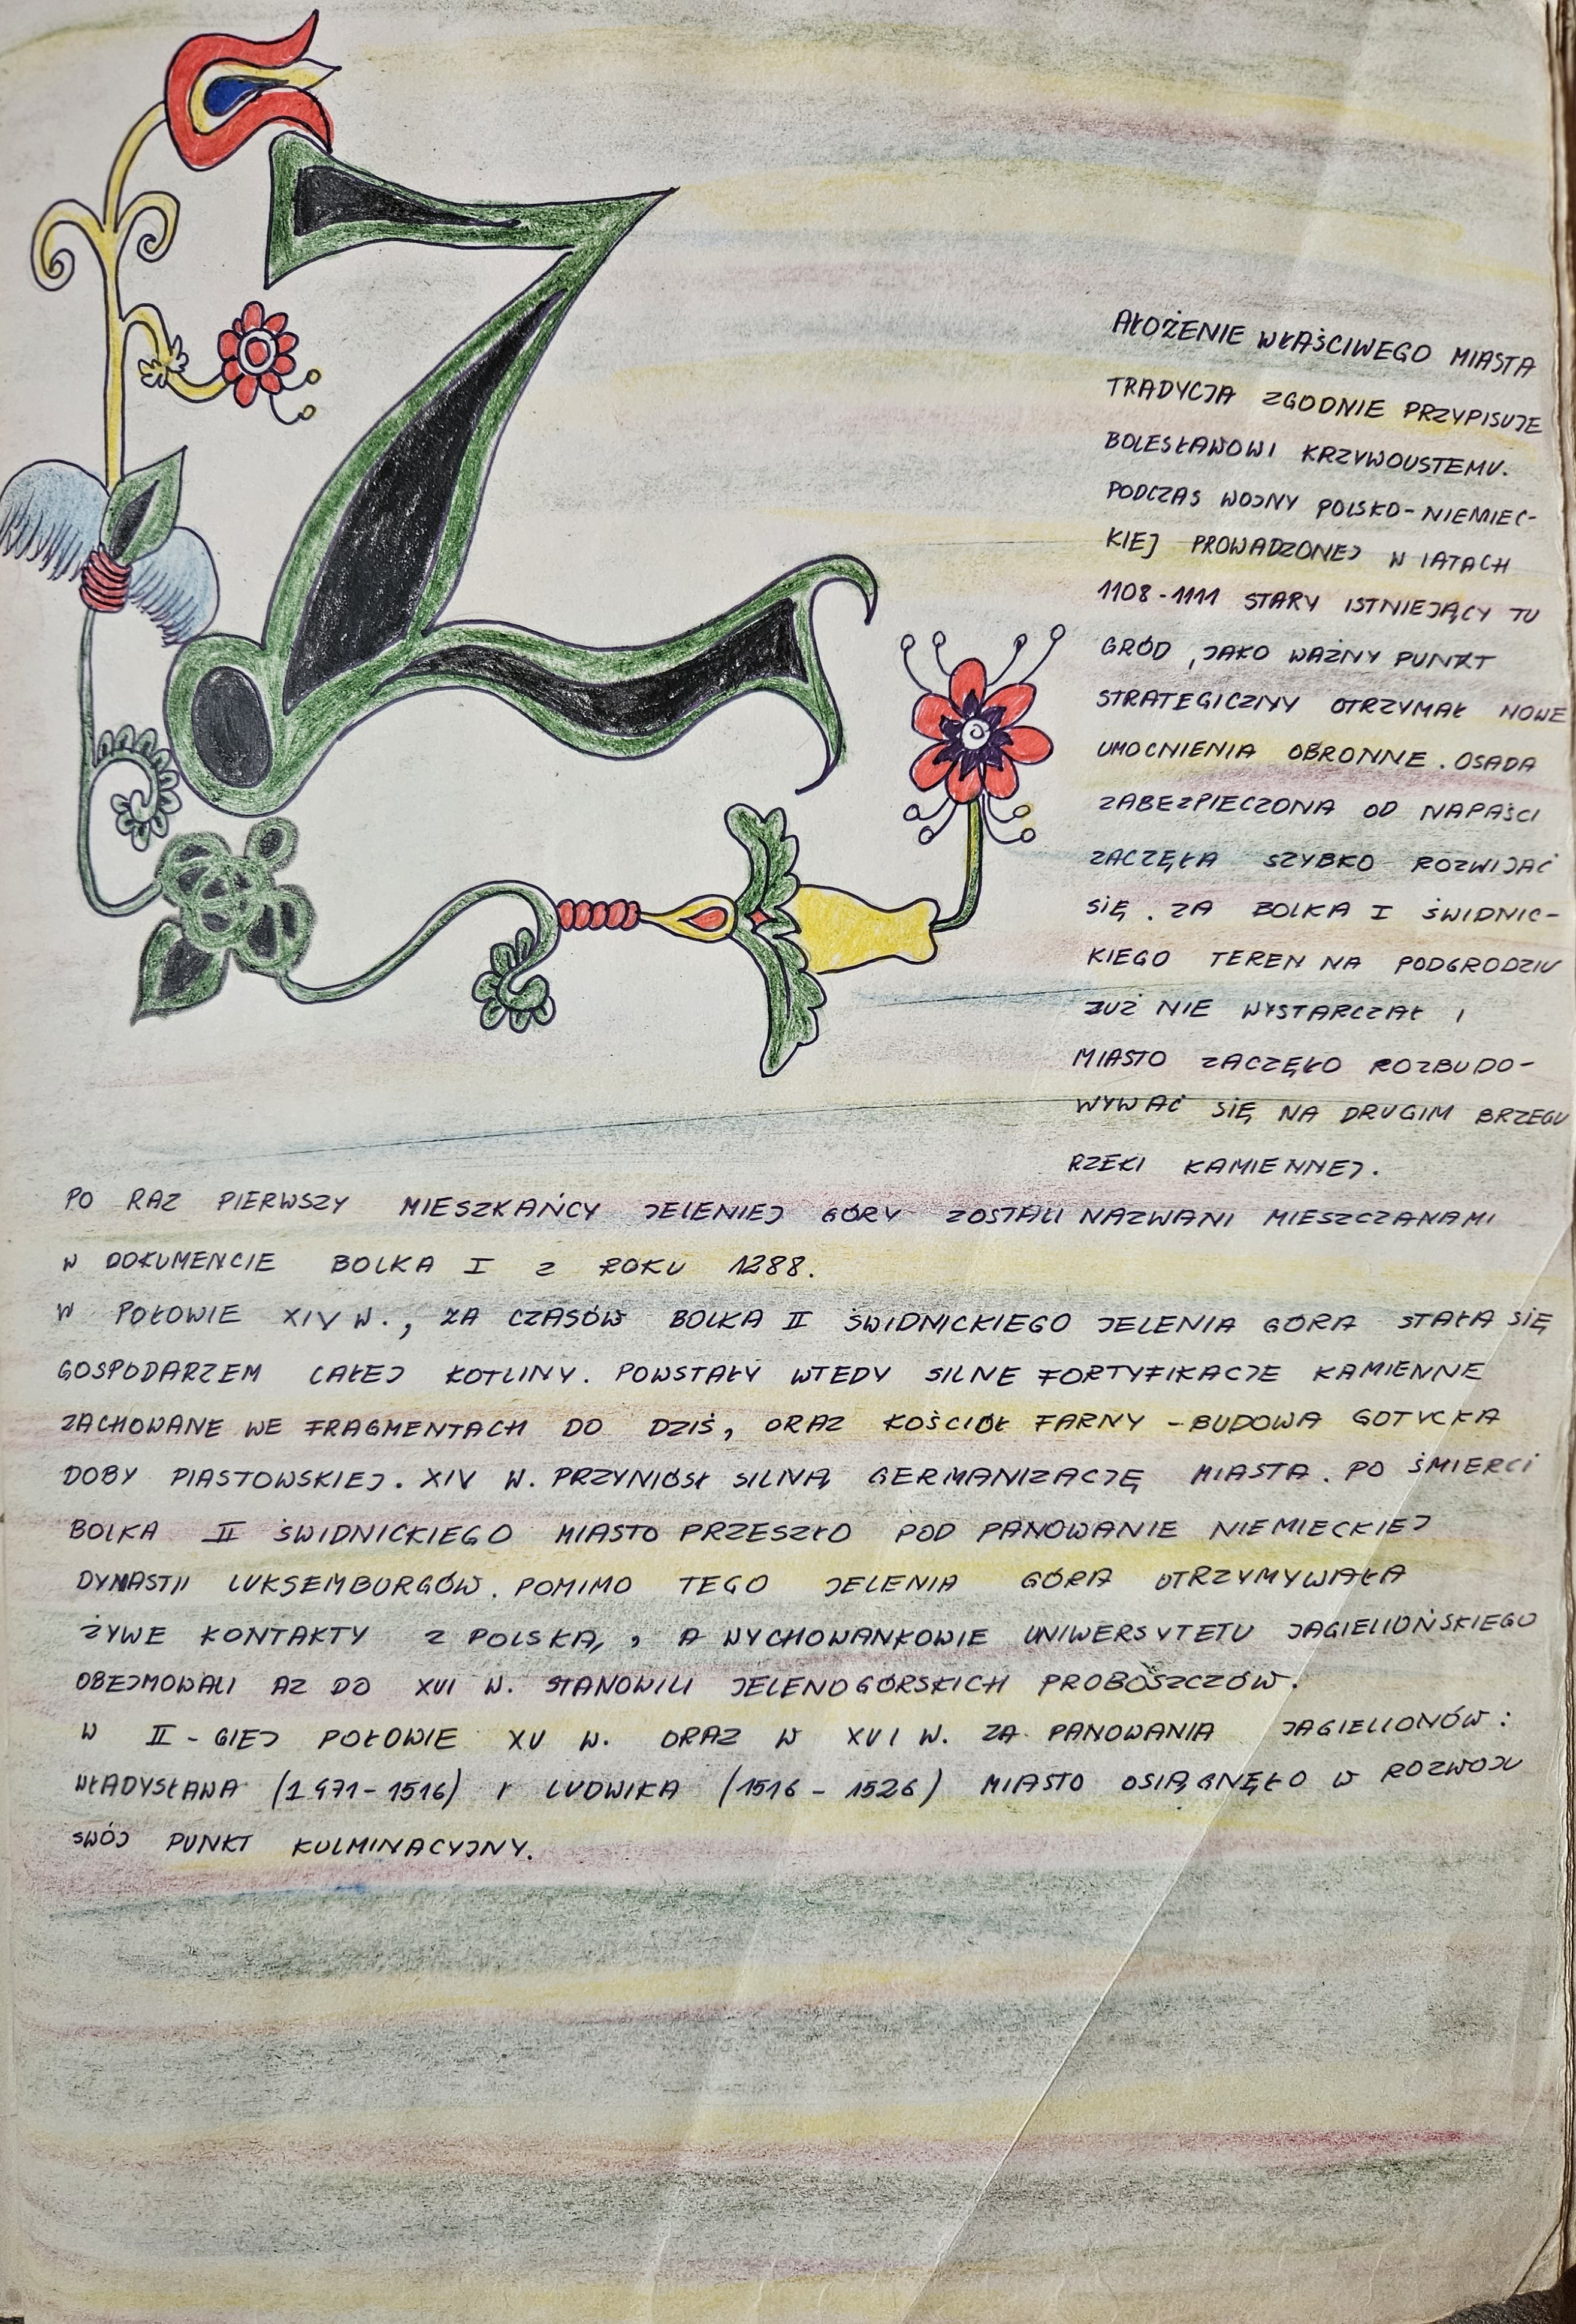 Z
AŁOŻENIE WŁAŚCIWEGO MIASTA
TRADYCJA ZGODNIE PRZYPISUJE
BOLESŁAWOWI KRZYWOUSTEMU.
PODCZAS WOJNY POLSKO-NIEMIEC-
KIEJ PROWADZONEJ W LATACH
1108-1111 STARY ISTNIEJĄCY TU
GRÓD , JAKO WAŻNY PUNKT
STRATEGICZNY OTRZYMAŁ NOWE
UMOCNIENIA OBRONNE . OSADA
ZABEZPIECZONA OD NAPAŚCI
ZACZĘŁA SZYBKO ROZWIJAĆ
SIĘ . ZA BOLKA I ŚWIDNIC-
KIEGO TEREN NA PODGRODZIU
JUŻ NIE WYSTARCZAŁ I
MIASTO ZACZĘŁO ROZBUDO-
WYWAĆ SIĘ NA DRUGIM BRZEGU
RZEKI KAMIENNEJ.
PO RAZ PIERWSZY MIESZKAŃCY JELENIEJ GÓRY ZOSTALI NAZWANI MIESZCZANAMI
W DOKUMENCIE BOLKA I Z ROKU 1288.
W POŁOWIE XIV W., ZA CZASÓW BOLKA II ŚWIDNICKIEGO JELENIA GÓRA STAŁA SIĘ
GOSPODARZEM CAŁEJ KOTLINY. POWSTAŁY WTEDY SILNE FORTYFIKACJE KAMIENNE
ZACHOWANE WE FRAGMENTACH DO DZIŚ, ORAZ KOŚCIÓŁ FARNY - BUDOWA GOTYCKA
DOBY PIASTOWSKIEJ. XIV W. PRZYNIÓSŁ SILNĄ GERMANIZACJĘ MIASTA. PO ŚMIERCI
BOLKA II ŚWIDNICKIEGO MIASTO PRZESZŁO POD PANOWANIE NIEMIECKIEJ
DYNASTII LUKSEMBURGÓW. POMIMO TEGO JELENIA GÓRA OTRZYMYWAŁA
ŻYWE KONTAKTY Z POLSKĄ, , A WYCHOWANKOWIE UNIWERSYTETU JAGIELLOŃSKIEGO
OBEJMOWALI AŻ DO XVI W. STANOWILI JELENOGÓRSKICH PROBOSZCZÓW.
W II - GIEJ POŁOWIE XV W. ORAZ W XVI W. ZA PANOWANIA JAGIELLONÓW:
WŁADYSŁAWA (1471-1516) I LUDWIKA (1516 - 1526) MIASTO OSIĄGNĘŁO W ROZWOJU
SWÓJ PUNKT KULMINACYJNY.